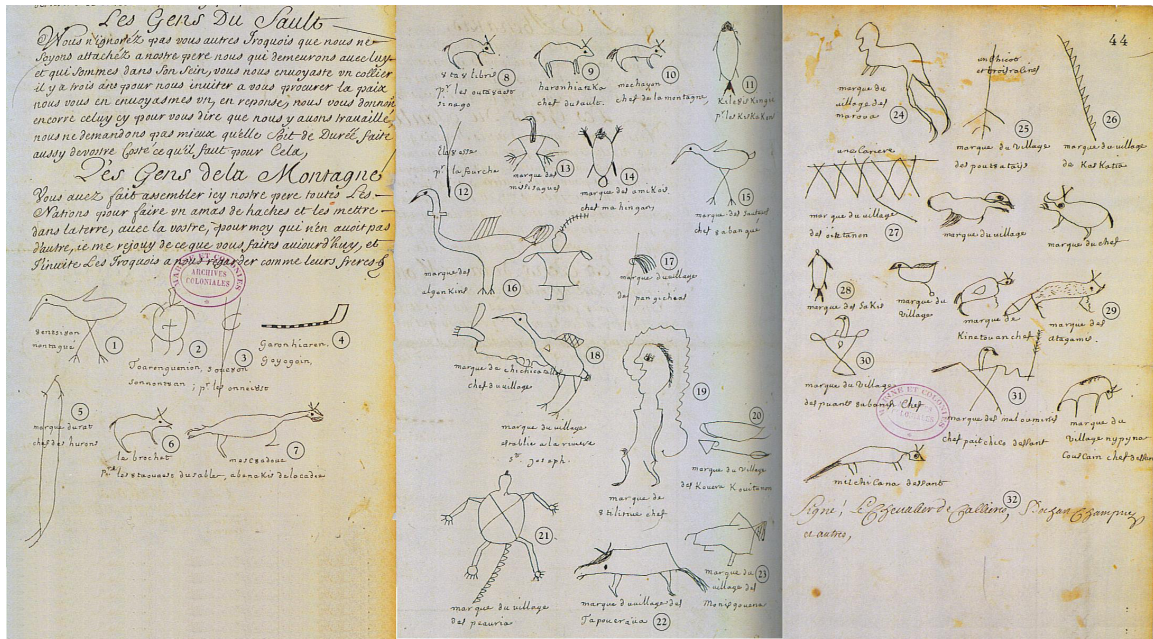 Les Gens Du Sault
Vous n'ignorez pas vous autres Iroquois que nous ne
soyons attachez a nostre pere nous qui demeurons avec luy
et qui sommes dans son sein, vous nous envoyaste vn collier
il y a trois ans pour nous inviter a vous procurer la paix
nous vous en envoyasmes vn, en reponse, nous vous donnon
encorre celuy cy pour vous dire que nous y auons trauaillé
nous ne demandons pas mieux qu'elle soit de Durée, faite
aussy de vostre Coste ce qu'il faut pour Cela,
Des Gens de la Montagne
Vous auez fait assembler icy nostre pere toutes Les
Nations pour faire vn amas de haches et les mettre
dans la terre, auec la vostre, pour moy qui n'en auoit pas
d'autre, ie me rejouy de ce que vous faites aujourd'huy, et
J'invite Les Iroquois a nous regarder comme leurs freres
MARINE ET COLONIES
ARCHIVES
COLONIALES
1
2
3
4
montague
Toarenguenion,
sonnontoan ; pr les onneiost
Garonhiaren.
Goyogoin,
5
marque du rat
chef des hurons
6
le brochet
7
abenakis delacadie
8
pr les outavaest
sinago
9
haronhiateka
chef du sault.
10
mechayon
chef de la montagne,
11
KileɤisKingie
pr les KisKaKons
12
pr la fourche
13
marque des
missisagues
14
marque des amikois
chef mahingan,
15
marque des sauteurs
chef ɤabangué
16
marque des
algonKins
17
marque du village
18
marque de chichicatalles
chef du village
marque du village
etablie a la riviere
st. joseph.
19
marque de
chef
20
marque du village
des Kouera Kouitanon
21
marque du village
des peauria
22
marque du village des
Tapouerɤua
23
marque du
village des
Monisgouena
44
24
marque du
village des
maroua
25
un chicot
et trois racines
marque du village
des pouteatays
26
marque du village
de KasKaKia
27
une cariere
marque du village
des ɤiatanon
marque du village
marque du chef
28
marque des saKis
marque du
village
Kinetouan chef
29
marque des
atagamis.
30
marque du village
des puants ɤabanis Chef
31
marque des malomines
chef paitchico dessant
marque du
village nypyna
Couscain chef dessant
MARINE ET COLONIES
milchilana dessant
32
Signé ; Le Chevalier de Callieres,
et autres,